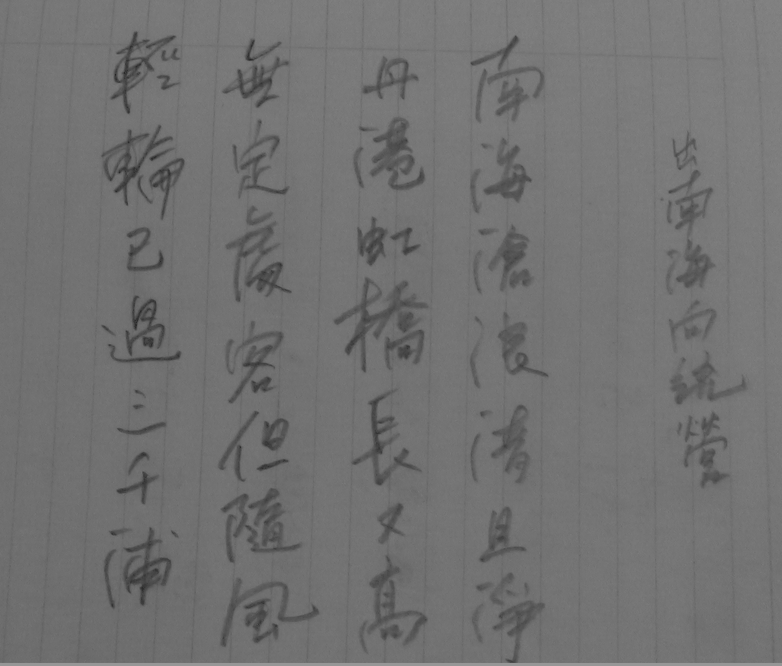 出南海向統營
南海滄浪清且淨
丹港虹橋長又高
無定處客但隨風
輕輪已過三千浦